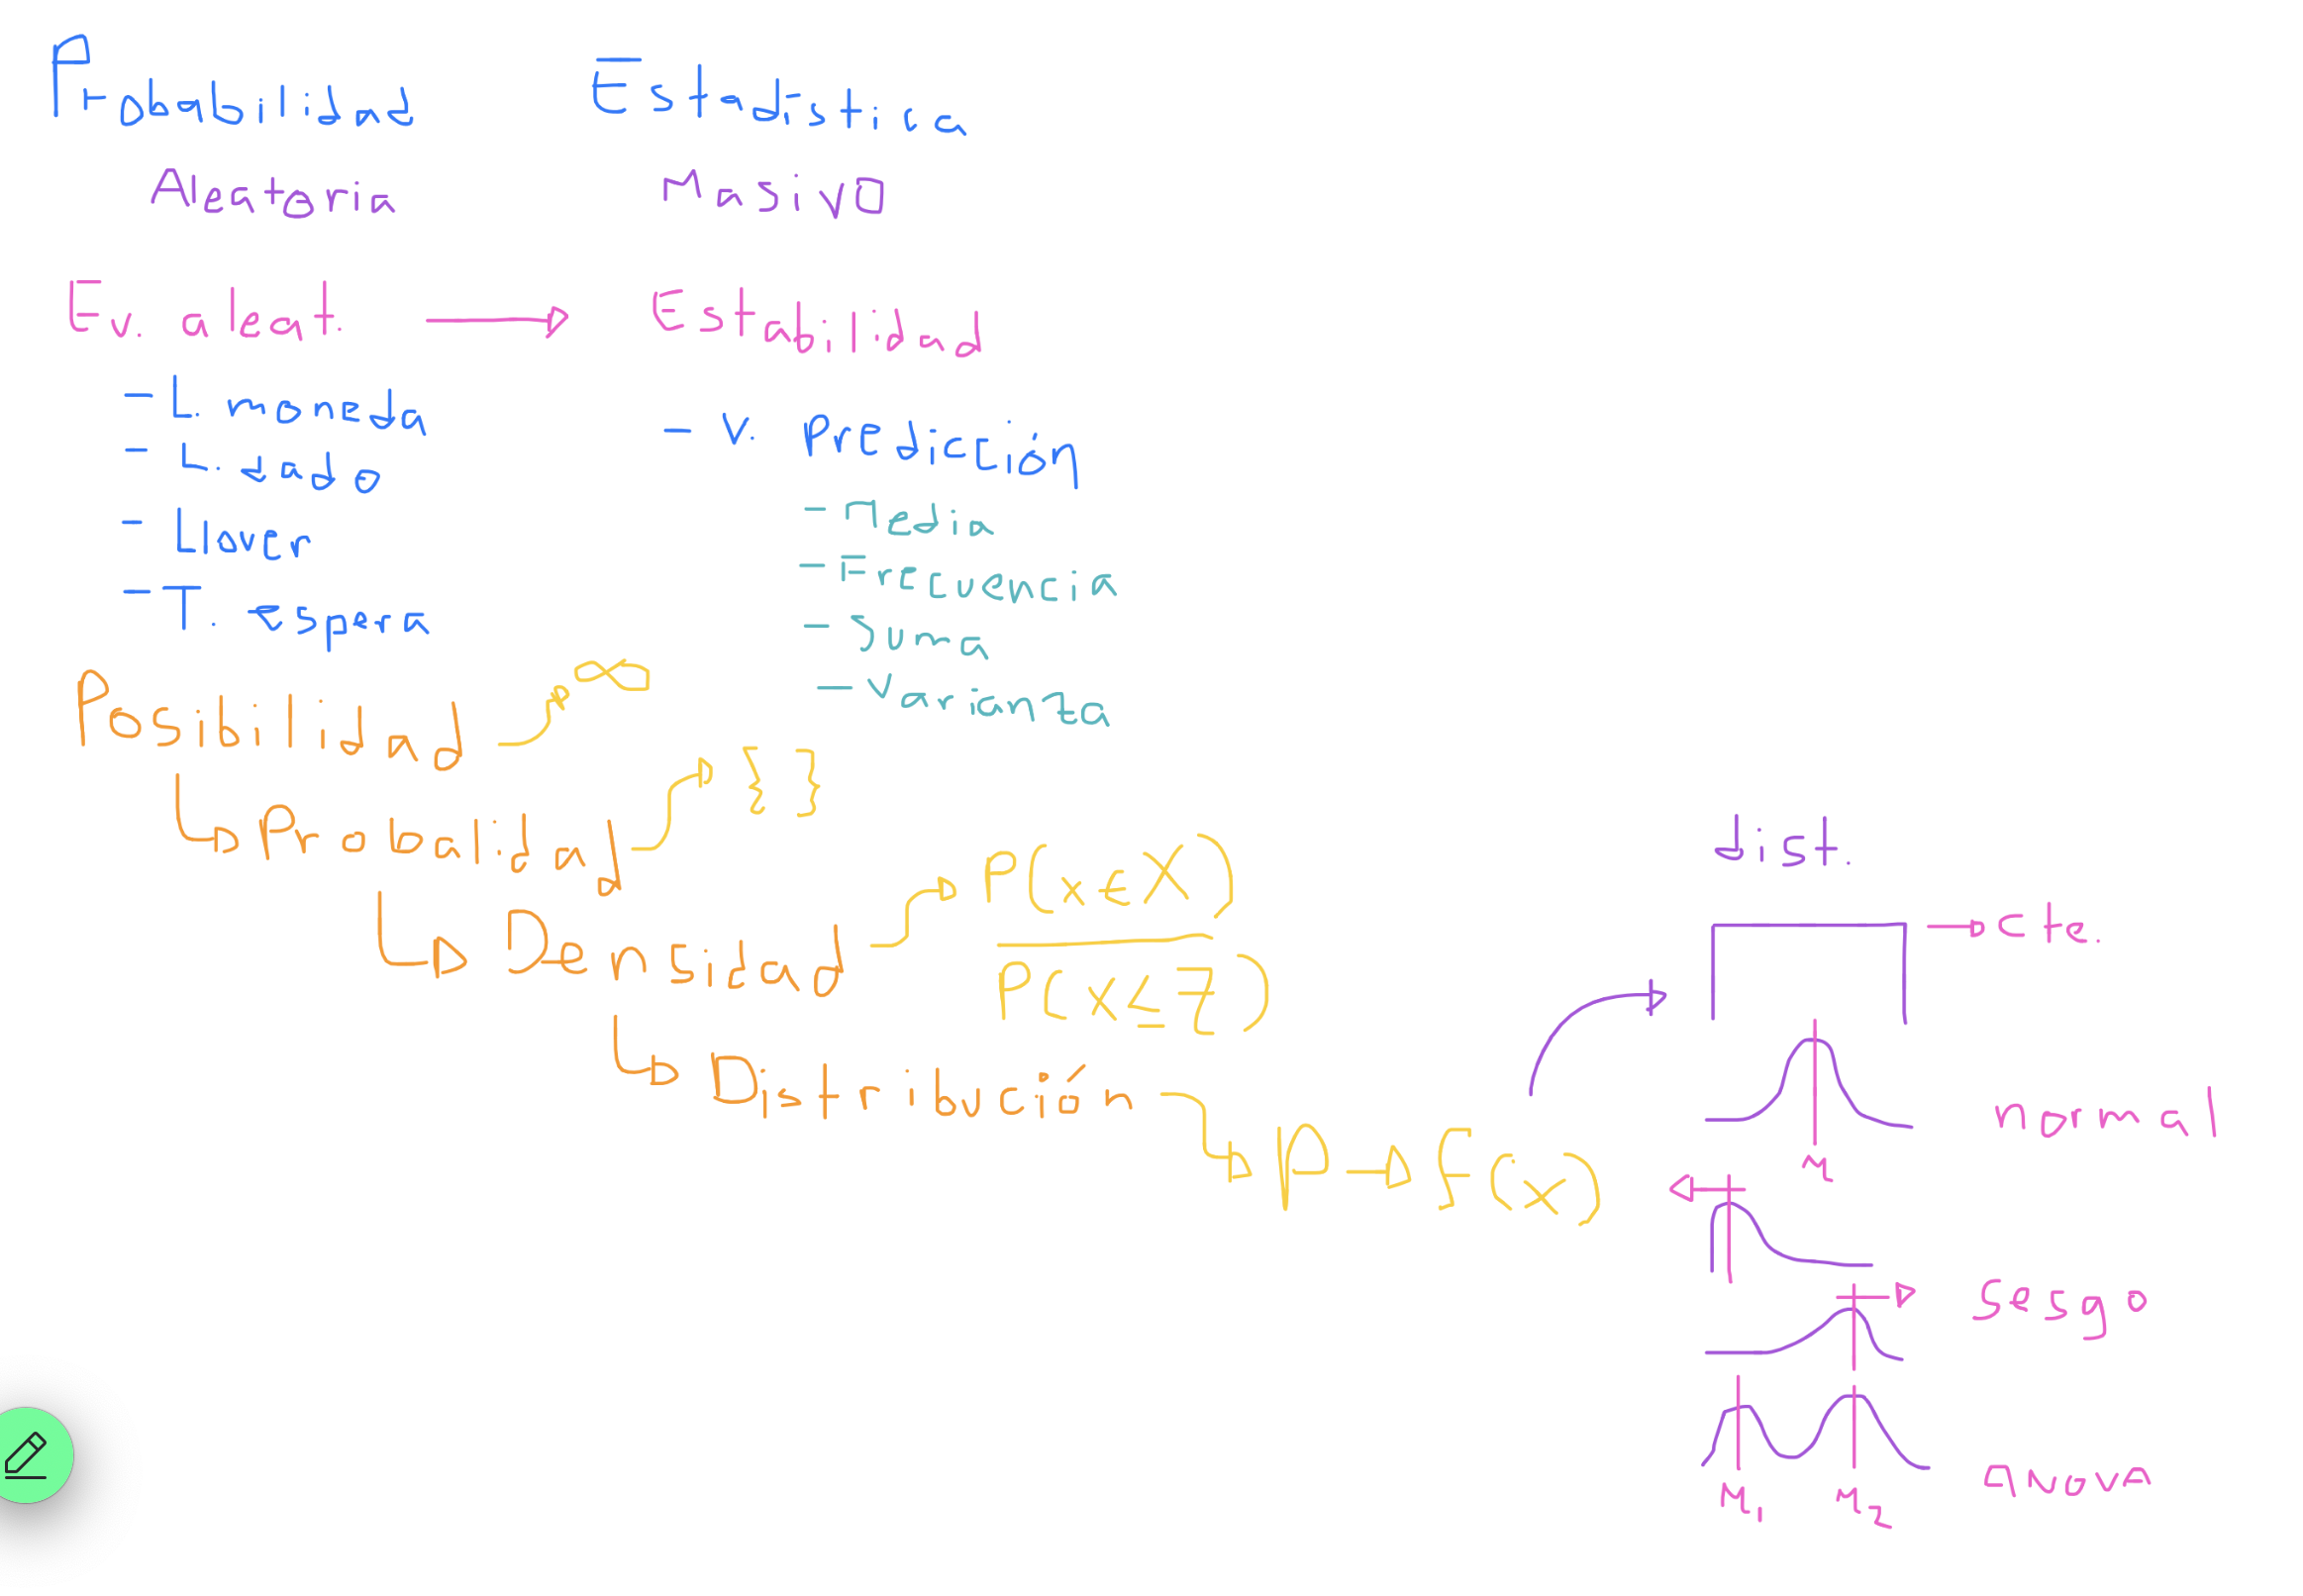 Probabilidad
Estadística
Aleatoria
Masivo
Ev. aleat.
Estabilidad
- L. moneda
- L. dado
- Llover
- T. espera
- V. Predicción
- Media
- Frecuencia
- Suma
- Varianza
Posibilidad
∞
Probalidad
{ }
Densidad
P(x ∈ X)
P(x ≤ z)
Distribución
P → f(x)
dist.
cte.
normal
M
Sesgo
M1
M2
ANOVA